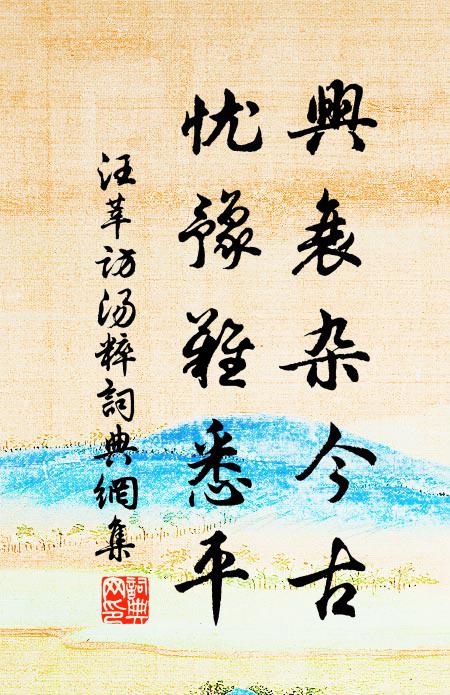 興衰杂今古
忧豫難悉平
汪莘访汤粹詞典網集
詞典